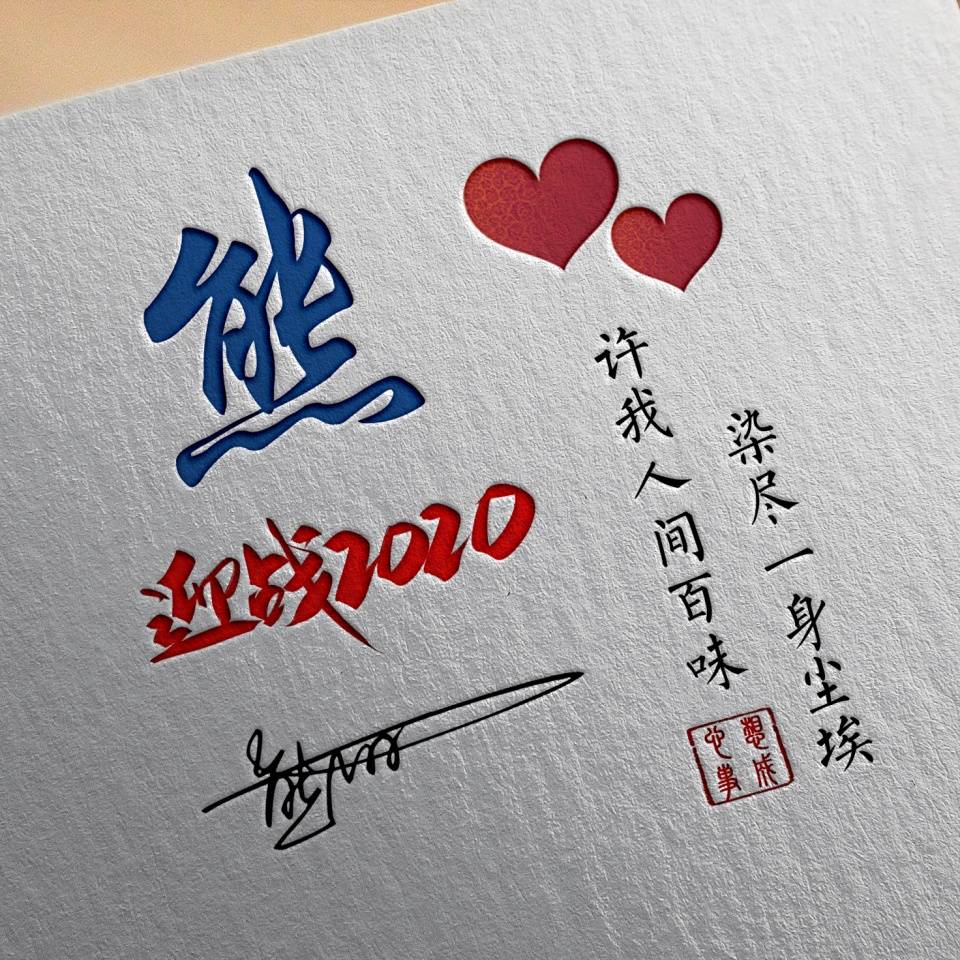 熊
迎战2020
染尽一身尘埃
许我人间百味
心想事成